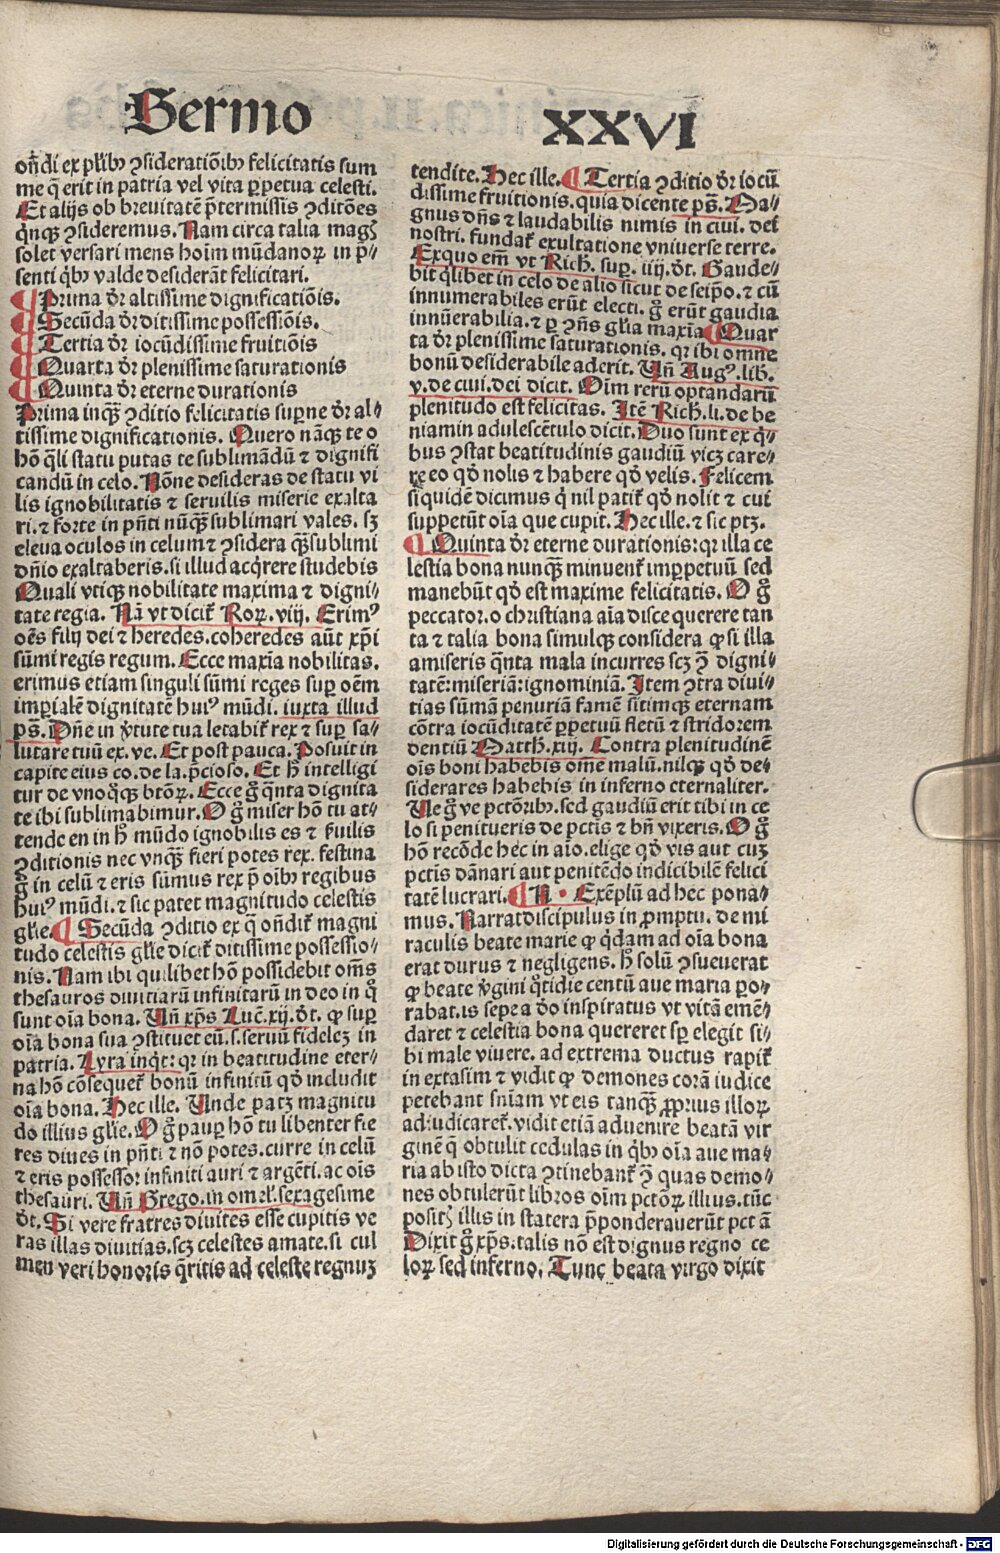 Sermo
XXVI
oñdi ex plib⁹ ꝯsideratiõib⁹ felicitatis sum
me q̃ erit in patria vel vita ꝑpetua celesti.
Et alijs ob breuitatẽ p̃termissis ꝯditões
q̃nqꝫ ꝯsideremus. Nam circa talia magꝭ
solet versari mens hoĩm mũdanoꝝ in p̃⸗
senti q̇b⁹ valde desiderãt felicitari.
¶ Prima dr̃ altissime dignificatiõis.
¶ Secũda dr̃ ditissime possessiõis.
¶ Tertia dr̃ iocũdissime fruitiõis
¶ Quarta dr̃ plenissime saturationis
¶ Quinta dr̃ eterne durationis
Prima inqꝫ ꝯditio felicitatis suꝑne dr̃ al⸗
tissime dignificationis. Quero nãqꝫ te o
hõ q̃li statu putas te sublimãdũ ⁊ dignifi
candũ in celo. Nõne desideras de statu vi
lis ignobilitatis ⁊ seruilis miserie exalta
ri. ⁊ forte in pñti nũqꝫ sublimari vales. sꝫ
eleua oculos in celum ⁊ ꝯsidera qꝫ sublimi
dñio exaltaberis. si illud acq̇rere studebis
Quali vtiqꝫ nobilitate maxima ⁊ digni⸗
tate regia. Nã vt dicit̃ Roꝝ. viij. Erim⁹
oẽs filij dei ⁊ heredes. coheredes aũt xp̃i
sũmi regis regum. Ecce maxĩa nobilitas.
erimus etiam singuli sũmi reges suꝑ oẽm
imꝑialẽ dignitatẽ hui⁹ mũdi. iuxta illud
ps̃. Dñe in v̓tute tua letabit̃ rex ⁊ suꝑ sa⸗
lutare tuũ ex. ve. Et post pauca. Posuit in
capite eius co. de la. p̃cioso. Et h̃ intelligi
tur de vnoq̇qꝫ btõꝝ. Ecce g̃ q̃nta dignita
te ibi sublimabimur. O g̃ miser hõ tu at⸗
tende en in h̃ mũdo ignobilis es ⁊ ſuilis
ꝯditionis nec vnqꝫ fieri potes rex. festina
g̃ in celũ ⁊ eris sũmus rex p̃ oib⁹ regibus
hui⁹ mũdi. ⁊ sic patet magnitudo celestis
glie. ¶ Secũda ꝯditio ex q̃ oñdit̃ magni
tudo celestis glie dicit̃ ditissime possessio⸗
nis. Nam ibi quilibet hõ possidebit oms̃
thesauros diuitiarũ infinitarũ in deo in q̊
sunt oĩa bona. Vñ xp̃s Luc̃. xij. dt̃. ꝙ suꝑ
oĩa bona sua ꝯstituet eũ. s. seruũ fidelẽ in
patria. Lyra inq̇t: qꝛ in beatitudine eter⸗
na hõ cõsequet̃ bonũ infinitũ qd̃ includit
oĩa bona. Hec ille. Unde patꝫ magnitu
do illius glie. O g̃ pauꝑ hõ tu libenter fie
res diues in pñti ⁊ nõ potes. curre in celũ
⁊ eris possessor infiniti auri ⁊ argẽti. ac oĩs
thesauri. Vñ Grego. in omeľ. sexagesime
dt̃. Si vere fratres diuites esse cupitis ve
ras illas diuitias. scꝫ celestes amate. si cul
men veri honoris q̃ritis ad celeste regnuꝫ
tendite. Hec ille. ¶ Tertia ꝯditio dr̃ iocũ
dissime fruitionis. quia dicente ps̃. Ma⸗
gnus dñs ⁊ laudabilis nimis in ciui. dei
nostri. fundat̃ exultatione vniuerse terre.
Exquo em̃ vt Rich. suꝑ. iiij. dt̃. Gaude⸗
bit q̃libet in celo de alio sicut de seip̃o. ⁊ cũ
innumerabiles erũt electi. g̃ erũt gaudia
innũerabilia. ⁊ ꝑ ꝯñs gľia maxĩa ¶ Quar
ta dr̃ plenissime saturationis. qꝛ ibi omne
bonũ desiderabile aderit. Vñ Aug⁹. lib.
v. de ciui. dei dicit. Oĩm rerũ optandarũ
plenitudo est felicitas. Itẽ Rich. li. de be
niamin adulescẽtulo dicit. Duo sunt ex q̇⸗
bus ꝯstat beatitudinis gaudiũ vicꝫ care⸗
re eo qd̃ nolis ⁊ habere qd̃ velis. Felicem
siquidẽ dicimus q̇ nil patit̃ qd̃ nolit ⁊ cui
suppetũt oĩa que cupit. Hec ille. ⁊ sic ptꝫ.
¶ Quinta dr̃ eterne durationis: qꝛ illa ce
lestia bona nunqꝫ minuent̃ imꝑpetuũ sed
manebũt qd̃ est maxime felicitatis. O g̃
peccator. o christiana aĩa disce querere tan
ta ⁊ talia bona simulqꝫ considera ꝙ si illa
amiseris q̃nta mala incurres scꝫ ꝯ̃ digni⸗
tatẽ: miseriã: ignominiã. Item ꝯtra diui⸗
tias sũmã penuriã famẽ sitimqꝫ eternam
cõtra iocũditatẽ ꝑpetuũ fletũ ⁊ stridorem
dentiũ Matth. xiij. Contra plenitudinẽ
oĩs boni habebis om̃e malũ. nilqꝫ qd̃ de⸗
siderares habebis in inferno eternaliter.
Ve g̃ ve pctõrib⁹. sed gaudiũ erit tibi in ce
lo si penitueris de pctis ⁊ bñ vixeris. O g̃
hõ recõde hec in aĩo. elige qd̃ vis aut cuꝫ
pctĩs dãnari aut penitẽdo indicibilẽ felici
tatẽ lucrari. ¶ N • Exẽplũ ad hec pona⸗
mus. Narrat discipulus in ꝓmptu. de mi
raculis beate marie ꝙ q̇dam ad oĩa bona
erat durus ⁊ negligens. h̃ solũ ꝯsueuerat
ꝙ beate v̓gini q̊tidie centũ aue maria po⸗
rabat. is sepe a dõ inspiratus vt vitã emẽ⸗
daret ⁊ celestia bona quereret sꝑ elegit si⸗
bi male viuere. ad extrema ductus rapit̃
in extasim ⁊ vidit ꝙ demones corã iudice
petebant sñiam vt eis tanqꝫ ꝓprius illoꝝ
adiudicaret̃. vidit etiã aduenire beatã vir
ginẽ q̃ obtulit cedulas in q̇b⁹ oĩa aue ma⸗
ria ab isto dicta ꝯtinebant̃ ꝯ̃ quas demo⸗
nes obtulerũt libros oĩm pctõꝝ illius. tũc
positꝭ illis in statera p̃ponderauerũt pctã
Dixit g̃ xp̃s. talis nõ est dignus regno ce
loꝝ sed inferno. Tunc beata virgo dixit
Digitalisierung gefördert durch die Deutsche Forschungsgemeinschaft - DFG